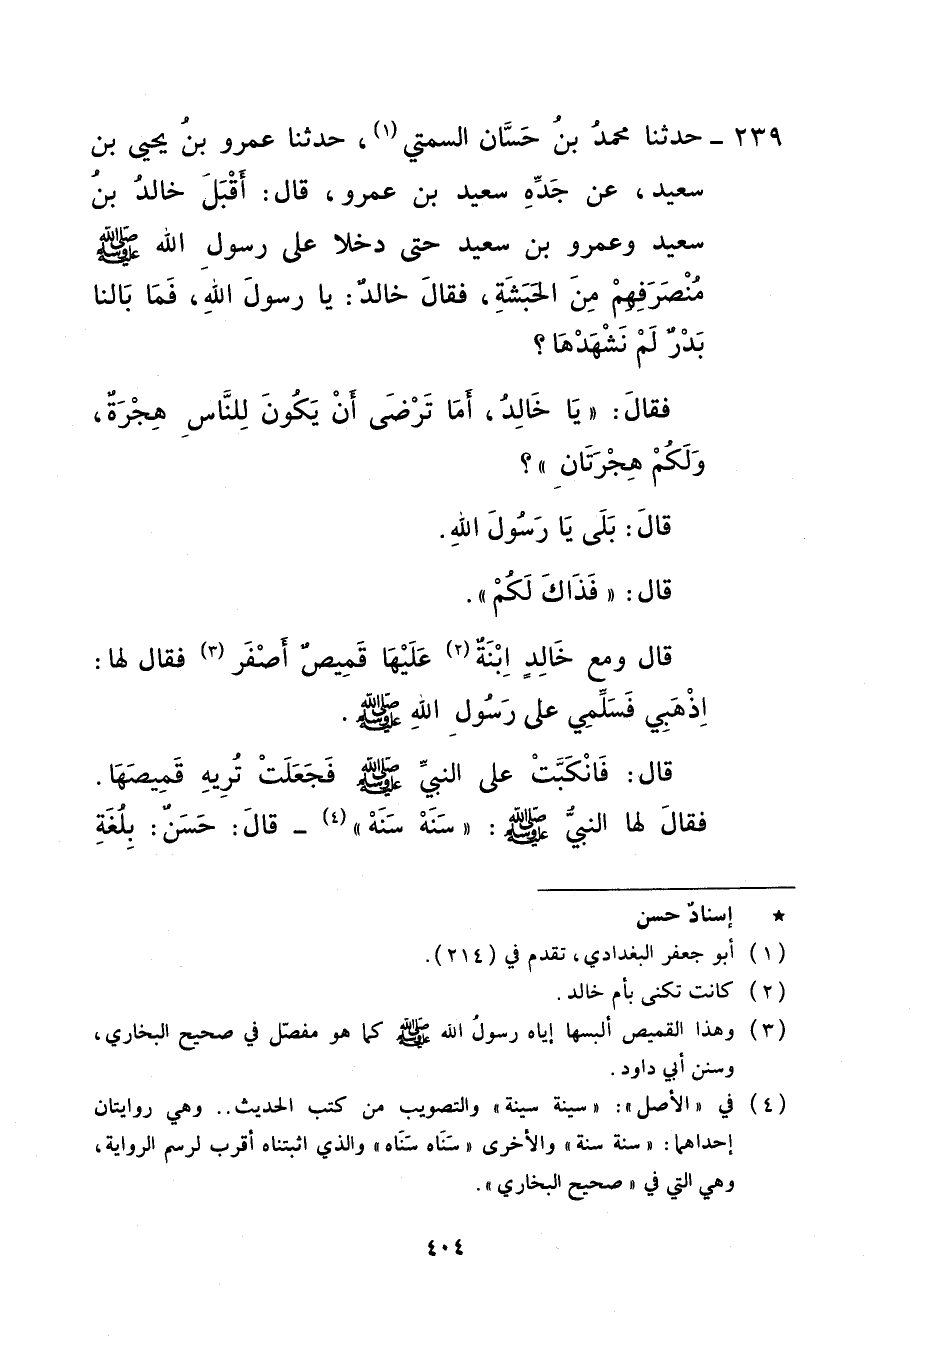 ٢٣٩ ـ حدثنا محمدُ بنُ حَسَّان السمتي (١)، حدثنا عمرو بنُ يحيى بن
سعيد، عن جَدِّهِ سعيد بن عمرو، قال: أَقْبَلَ خالدُ بنُ
سعيد وعمرو بن سعيد حتى دخلا على رسولِ الله ﷺ
مُنْصَرَفِهِمْ مِنَ الحَبَشَةِ، فقالَ خالدٌ: يا رسولَ اللهِ، فَمَا بَالنا
بَدْرٌ لَمْ نَشْهَدْهَا؟
فقالَ: « يَا خَالِدُ، أَمَا تَرْضَى أَنْ يَكُونَ لِلنَّاسِ هِجْرَةٌ،
وَلَكُمْ هِجْرَتَانِ »؟
قالَ: بَلَى يَا رَسُولَ اللهِ.
قال: « فَذَاكَ لَكُمْ ».
قال ومع خَالِدٍ اِبْنَةٌ (٢) عَلَيْهَا قَمِيصٌ أَصْفَر (٣) فقال لها:
اِذْهَبِي فَسَلِّمِي على رَسُولِ اللهِ ﷺ.
قال: فَانْكَبَّتْ على النبيِّ ﷺ فَجَعَلَتْ تُرِيهِ قَمِيصَهَا.
فقالَ لها النبيُّ ﷺ: « سَنَهْ سَنَهْ » (٤) ـ قالَ: حَسَنٌ: بِلُغَةِ
★ إسنادٌ حسن
(١) أبو جعفر البغدادي، تقدم في (٢١٤).
(٢) كانت تكنى بأم خالد.
(٣) وهذا القميص ألبسها إياه رسولُ الله ﷺ كما هو مفصّل في صحيح البخاري،
وسنن أبي داود.
(٤) في « الأصل »: « سينة سينة » والتصويب من كتب الحديث.. وهي روايتان
إحداهما: « سنة سنة » والأخرى « سَنَاه سَنَاه » والذي اثبتناه أقرب لرسم الرواية،
وهي التي في « صحيح البخاري ».
٤٠٤